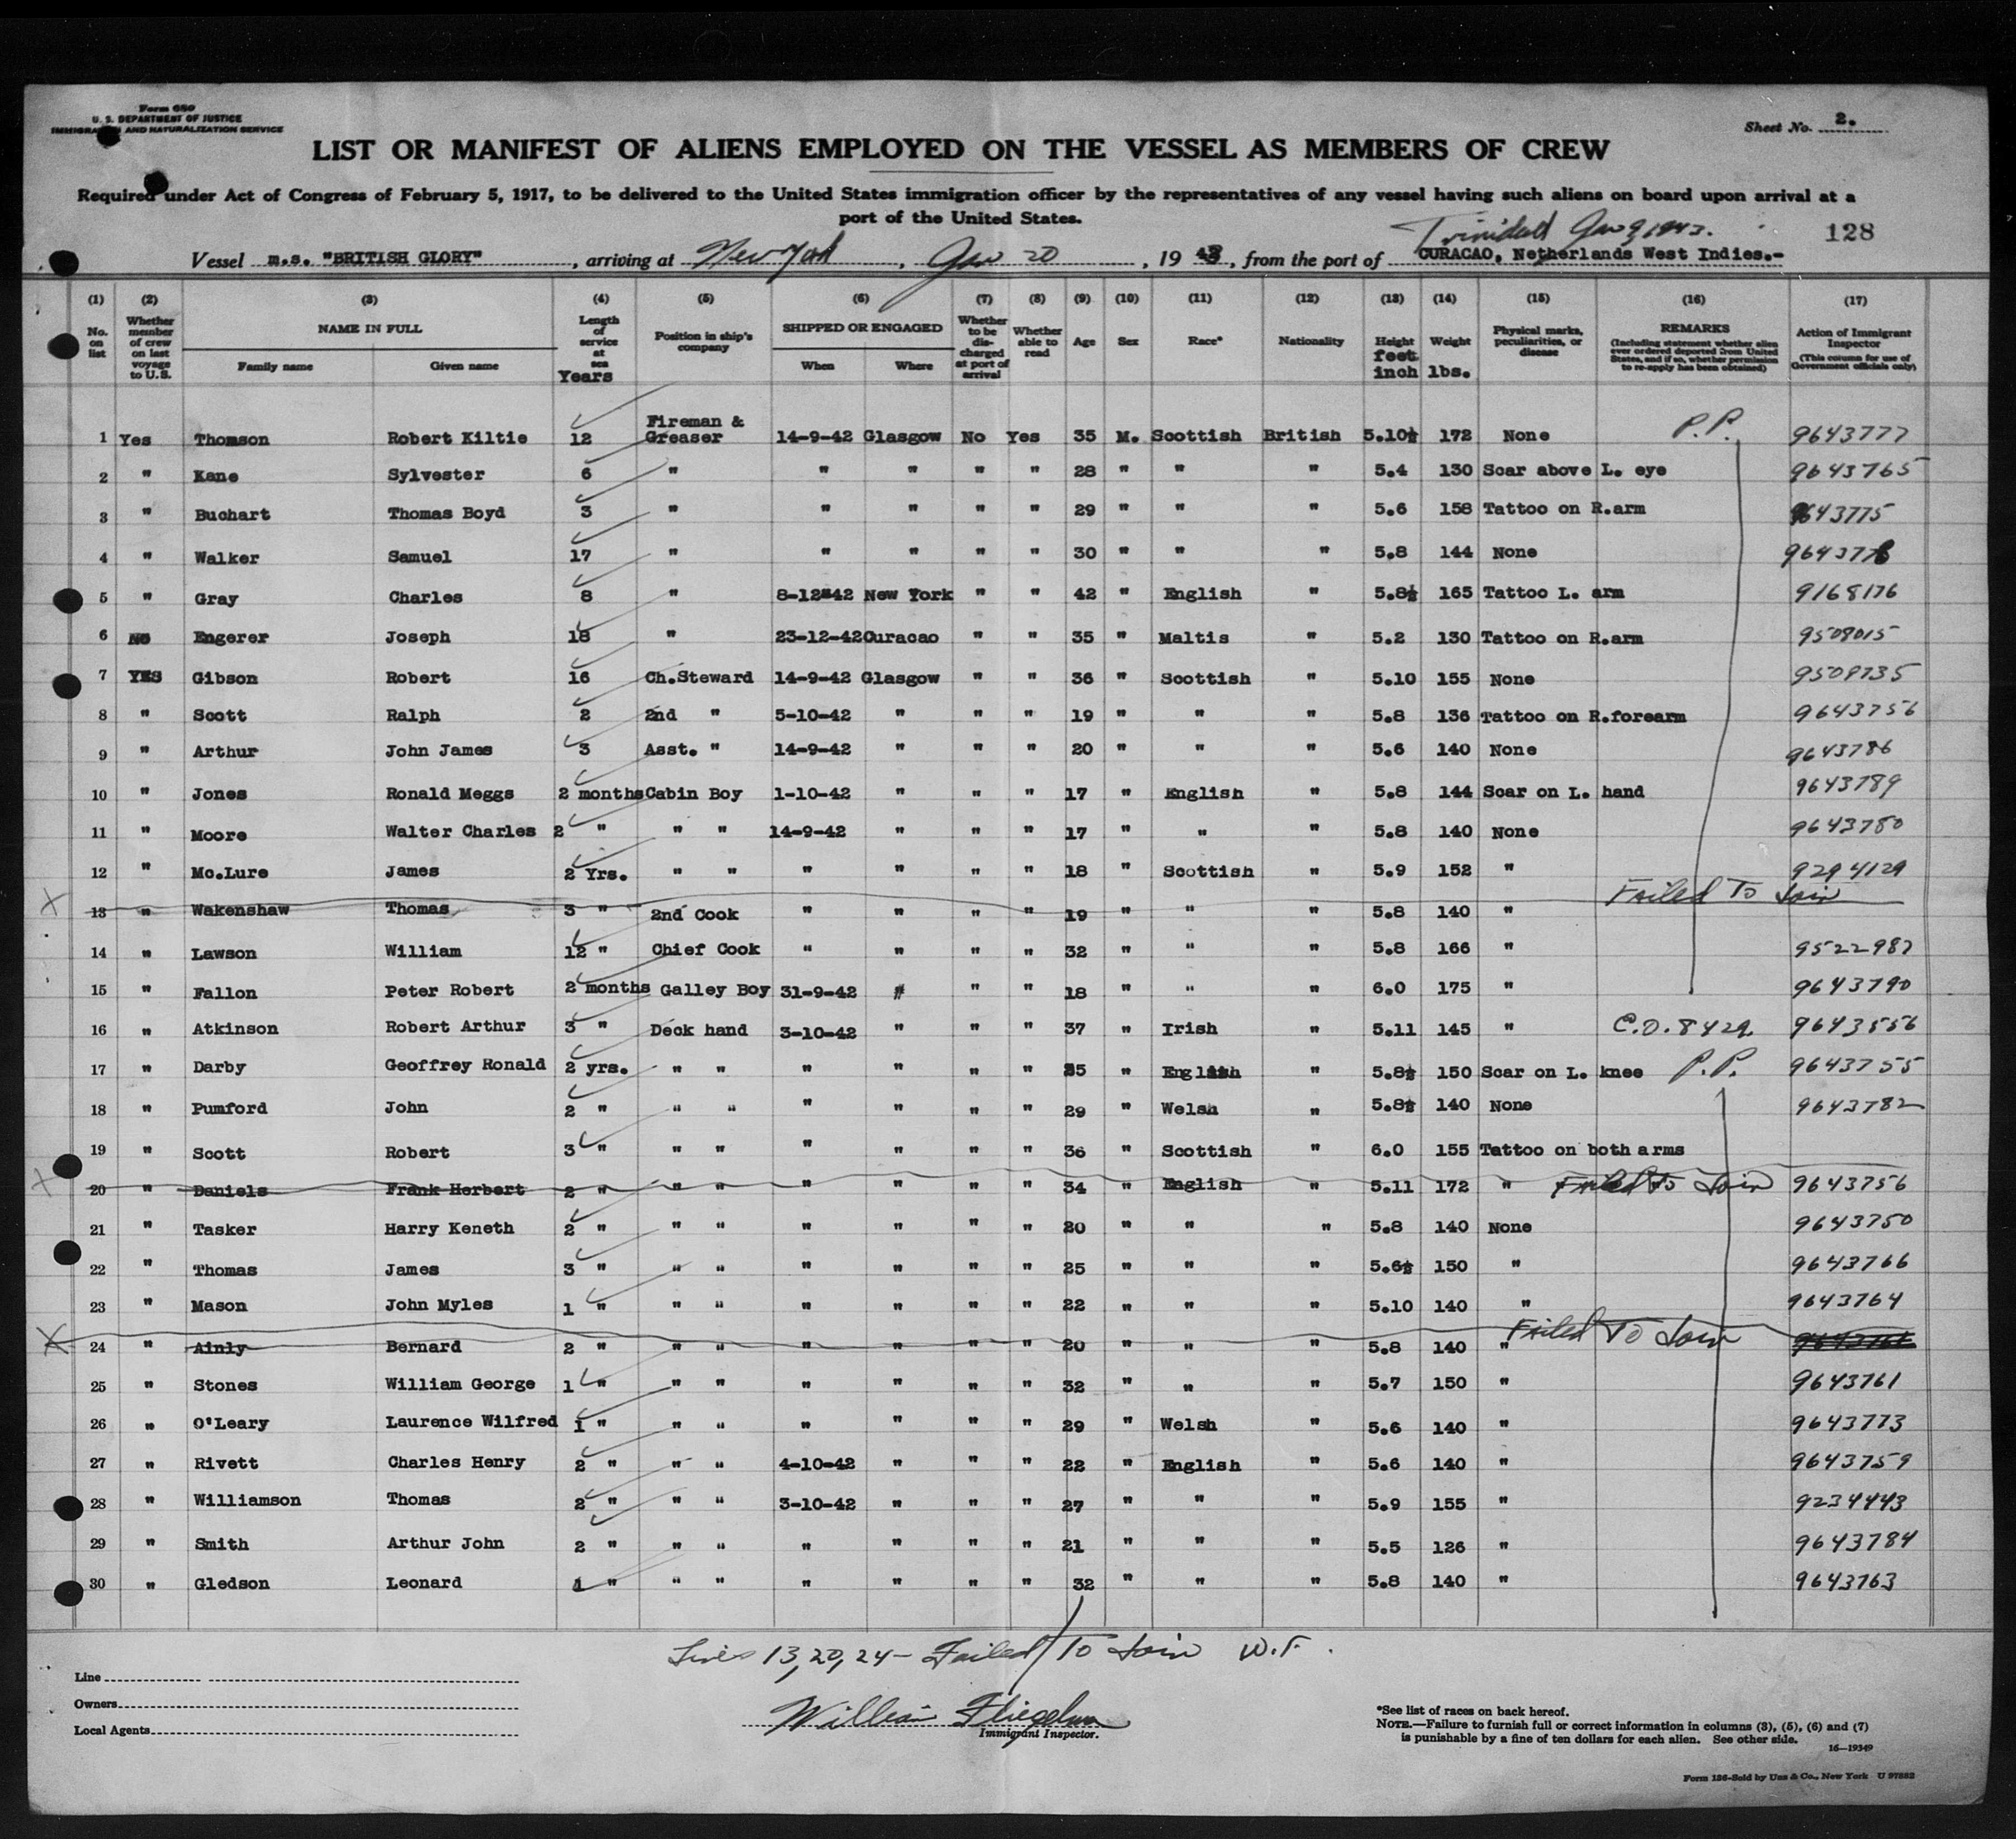 Form 680
U. S. DEPARTMENT OF JUSTICE
IMMIGRATION AND NATURALIZATION SERVICE
Sheet No. 2.
LIST OR MANIFEST OF ALIENS EMPLOYED ON THE VESSEL AS MEMBERS OF CREW
Required under Act of Congress of February 5, 1917, to be delivered to the United States immigration officer by the representatives of any vessel having such aliens on board upon arrival at a
port of the United States.
Trinidad Jan 9, 1943.
128
Vessel m.s. "BRITISH GLORY", arriving at New York, Jan 20, 1943, from the port of CURACAO, Netherlands West Indies.-
(1) (2) (3) (4) (5) (6) (7) (8) (9) (10) (11) (12) (13) (14) (15) (16) (17)
No. on list
Whether member of crew on last voyage to U.S.
NAME IN FULL
Family name Given name
Length of service at sea
Years
Position in ship's company
SHIPPED OR ENGAGED
When Where
Whether to be discharged at port of arrival
Whether able to read
Age
Sex
Race*
Nationality
Height
feet inch
Weight
lbs.
Physical marks, peculiarities, or disease
REMARKS
(Including statement whether alien ever ordered deported from United States, and if so, whether permission to re-apply has been obtained)
Action of Immigrant Inspector
(This column for use of Government officials only)
1 Yes Thomson Robert Kiltie 12 Fireman & Greaser 14-9-42 Glasgow No Yes 35 M. Scottish British 5.10½ 172 None P.P. 9643777
2 " Kane Sylvester 6 " " " " " 28 " " " 5.4 130 Scar above L. eye 9643765
3 " Buchart Thomas Boyd 3 " " " " " 29 " " " 5.6 158 Tattoo on R.arm 9643775
4 " Walker Samuel 17 " " " " " 30 " " " 5.8 144 None
5 " Gray Charles 8 " 8-12-42 New York " " 42 " English " 5.8½ 165 Tattoo L. arm 9168176
6 NO Engerer Joseph 18 " 23-12-42 Curacao " " 35 " Maltis " 5.2 130 Tattoo on R.arm 9508015
7 YES Gibson Robert 16 Ch.Steward 14-9-42 Glasgow " " 36 " Scottish " 5.10 155 None 9509735
8 " Scott Ralph 2 2nd " 5-10-42 " " " 19 " " " 5.8 136 Tattoo on R.forearm 9643756
9 " Arthur John James 3 Asst. " 14-9-42 " " " 20 " " " 5.6 140 None 9643786
10 " Jones Ronald Meggs 2 months Cabin Boy 1-10-42 " " " 17 " English " 5.8 144 Scar on L. hand 9643789
11 " Moore Walter Charles 2 " " " 14-9-42 " " " 17 " " " 5.8 140 None 9643780
12 " Mc.Lure James 2 Yrs. " " " " " " 18 " Scottish " 5.9 152 " 9294129
13 " Wakenshaw Thomas 3 " 2nd Cook " " " " 19 " " " 5.8 140 " Failed To Join
14 " Lawson William 12 " Chief Cook " " " " 32 " " " 5.8 166 " 9522987
15 " Fallon Peter Robert 2 months Galley Boy 31-9-42 " " " 18 " " " 6.0 175 " 9643790
16 " Atkinson Robert Arthur 3 " Deck hand 3-10-42 " " " 37 " Irish " 5.11 145 " C.O. 8429 9643556
17 " Darby Geoffrey Ronald 2 yrs. " " " " " " 25 " English " 5.8½ 150 Scar on L. knee P.P. 9643755
18 " Pumford John 2 " " " " " " " 29 " Welsh " 5.8½ 140 None 9643782
19 " Scott Robert 3 " " " " " " " 36 " Scottish " 6.0 155 Tattoo on both arms
20 " Daniels Frank Herbert 2 " " " " " " " 34 " English " 5.11 172 " Failed To Join 9643756
21 " Tasker Harry Keneth 2 " " " " " " " 20 " " " 5.8 140 None 9643750
22 " Thomas James 3 " " " " " " " 25 " " " 5.6½ 150 " 9643766
23 " Mason John Myles 1 " " " " " " " 22 " " " 5.10 140 " 9643764
24 " Ainly Bernard 2 " " " " " " " 20 " " " 5.8 140 " Failed To Join
25 " Stones William George 1 " " " " " " " 32 " " " 5.7 150 " 9643761
26 " O'Leary Laurence Wilfred 1 " " " " " " " 29 " Welsh " 5.6 140 " 9643773
27 " Rivett Charles Henry 2 " " " 4-10-42 " " " 22 " English " 5.6 140 " 9643759
28 " Williamson Thomas 2 " " " 3-10-42 " " " 27 " " " 5.9 155 " 9234443
29 " Smith Arthur John 2 " " " " " " " 21 " " " 5.5 126 " 9643784
30 " Gledson Leonard 1 " " " " " " " 32 " " " 5.8 140 " 9643763
Lines 13, 20, 24 - Failed To Join W.F.
Line
Owners
Local Agents
William Fliegelman
Immigrant Inspector.
*See list of races on back hereof.
NOTE.—Failure to furnish full or correct information in columns (3), (5), (6) and (7)
is punishable by a fine of ten dollars for each alien. See other side.
16—19349
Form 136-Sold by Unz & Co., New York U 97882